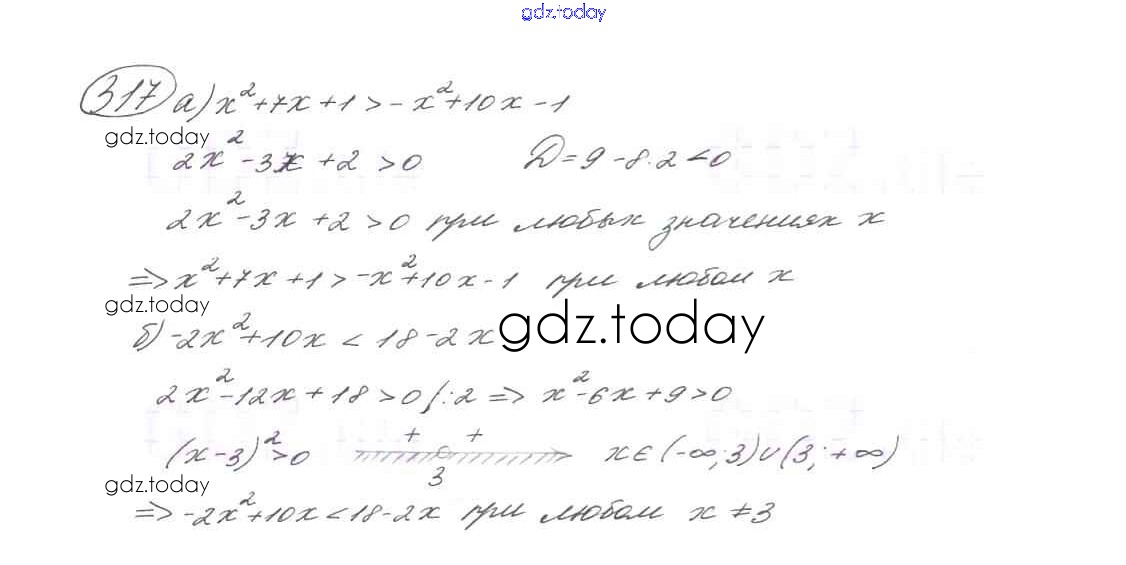 gdz.today
317 а) x²+7x+1>-x²+10x-1
gdz.today
2x²-3x+2>0 D=9-8·2<0
2x²-3x+2>0 при любых значениях x
=> x²+7x+1>-x²+10x-1 при любом x
gdz.today
б) -2x²+10x<18-2x gdz.today
2x²-12x+18>0 /:2 => x²-6x+9>0
(x-3)²>0 + + 3 x∈(-∞;3)∪(3;+∞)
gdz.today
=> -2x²+10x<18-2x при любом x≠3